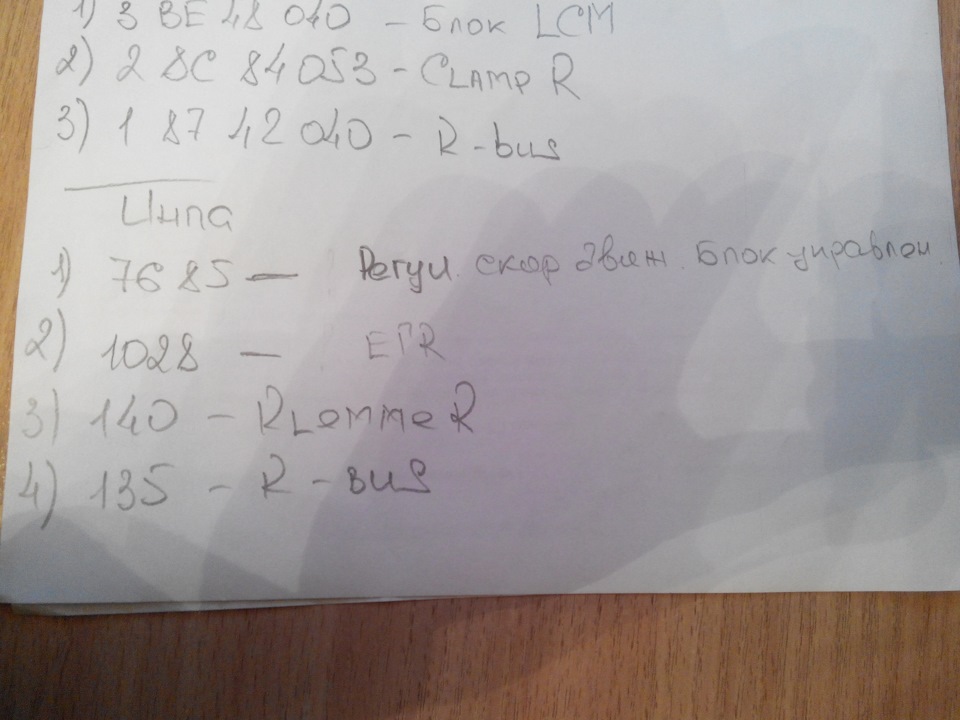 1) 3 BE 48 040 - Блок LCM
2) 2 8C 84 053 - CLAMP R
3) 1 87 42 040 - R-bus
Инпа
1) 7685 — Регул. скор движ. Блок управлен.
2) 1028 — ЕГR
3) 140 - RLemme R
4) 135 - R-bus